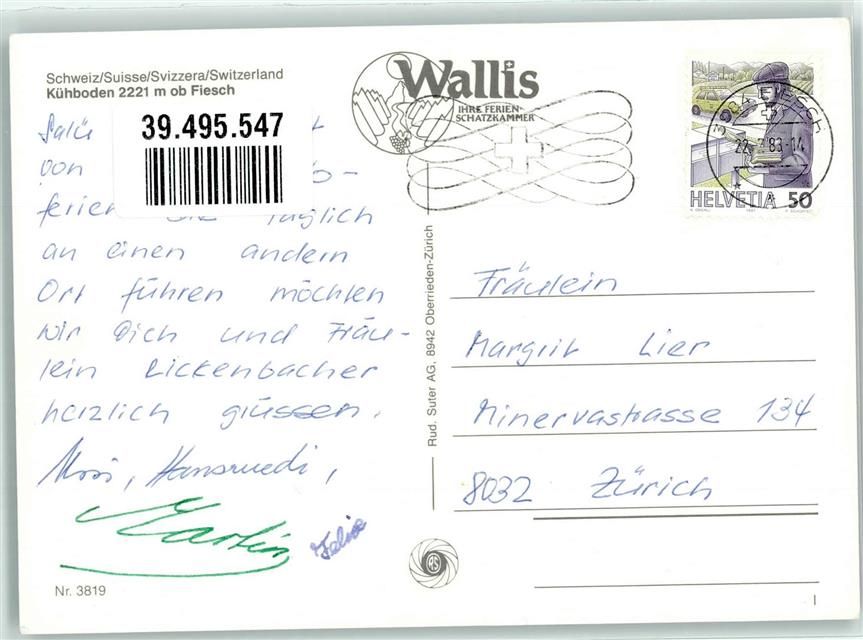 Schweiz/Suisse/Svizzera/Switzerland
Kühboden 2221 m ob Fiesch
39.495.547
Salü
von
ferien täglich
an einen andern
Ort führen möchten
wir Dich und Fräu-
lein Lickenbacher
herzlich grüssen.
Hansruedi,
Martin
Felix
Nr. 3819
Wallis
IHRE FERIEN-
SCHATZKAMMER
HELVETIA 50
Rud. Suter AG, 8942 Oberrieden-Zürich
Fräulein
Margrit Lier
Minervastrasse 134
8032 Zürich